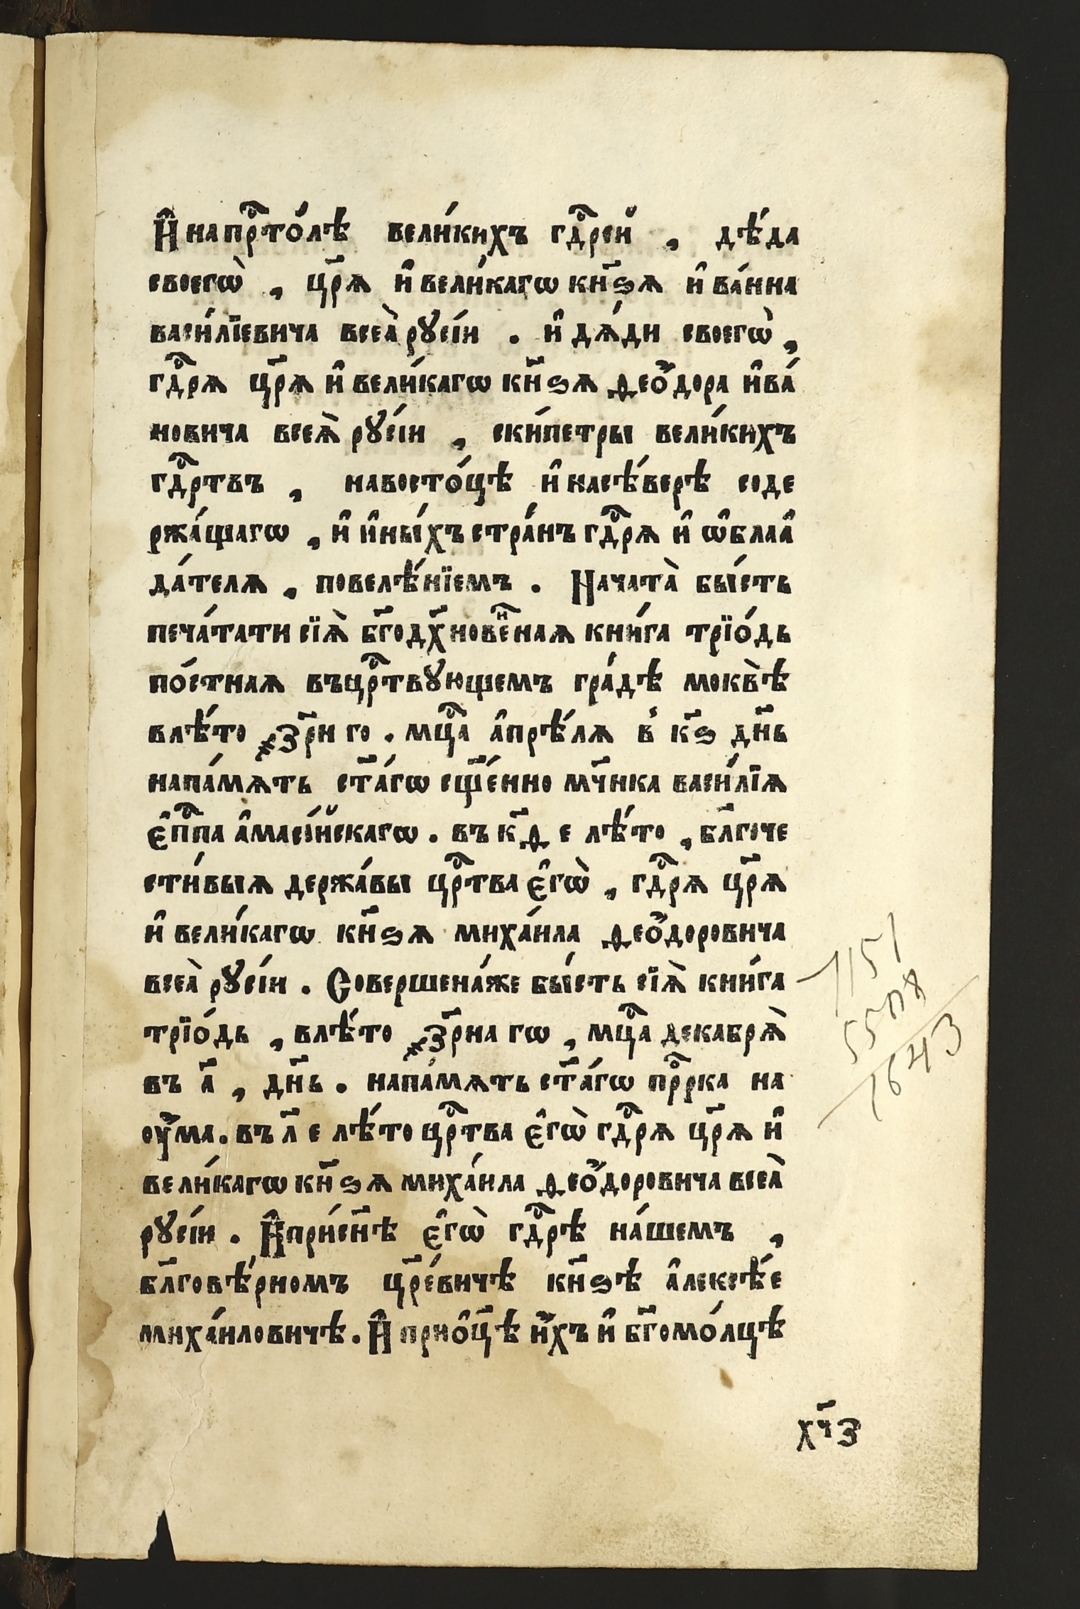 И҆ на прⷭ҇то́лѣ вели́кихъ гдⷭ҇рей , дѣ́да
своегѡ̀ , цр҃ѧ и҆ вели́кагѡ кн҃ѕѧ и҆ва́нна
васи́лїевича всеѧ̀ рꙋсі́и . и҆ дѧ́ди своегѡ̀ ,
гдⷭ҇рѧ цр҃ѧ и҆ вели́кагѡ кн҃ѕѧ ѳео́дора и҆ва́
новича всеѧ̀ рꙋсі́и , ски́петры вели́кихъ
гдⷭ҇ртвъ , на восто́цѣ и҆ на сѣ́верѣ соде
ржа́щагѡ , и҆ и҆ны́хъ стра́нъ гдⷭ҇рѧ и҆ ѡ҆блаⷣ
да́телѧ , повелѣ́нїемъ . Начата̀ бы́сть
печа́тати сїѧ̀ бг҃одх҃нове́нⷩ҇аѧ кни́га трїо́дь
по́стнаѧ въ црⷭ҇твꙋющемъ гра́дѣ моквѣ̀
в лѣ́то ҂зр҃н го . мцⷭ҇а а҆прѣ́лѧ в̾ к҃ѕ дн҃ь
на па́мѧть ст҃а́гѡ сщ҃е́нно мч҃нка васи́лїѧ
є҆пⷭ҇па а҆масі́йскагѡ . въ к҃д е лѣ́то , бл҃гоче
сти́выѧ держа́вы црⷭ҇тва є҆гѡ̀ , гдⷭ҇рѧ цр҃ѧ
и҆ вели́кагѡ кн҃ѕѧ миха́ила ѳео́доровича
всеѧ̀ рꙋсі́и . Соверше́на же бы́сть сїѧ̀ кни́га
трїо́дь , в лѣ́то ҂зр҃на гѡ , мцⷭ҇а декабрѧ̀
въ а҃ , дн҃ь . на па́мѧть ст҃а́гѡ прⷪ҇рка на
оу́ма . въ л҃ е лѣ́то црⷭ҇тва є҆гѡ̀ гдⷭ҇рѧ цр҃ѧ и҆
вели́кагѡ кн҃ѕѧ миха́ила ѳео́доровича всеѧ̀
рꙋсі́и . И҆ при сн҃ѣ є҆гѡ̀ гдⷭ҇рѣ на́шемъ ,
бл҃говѣ́рномъ цр҃е́вичѣ кн҃ѕѣ а҆леѯѣ́е
миха́иловичѣ . И҆ при ѻ҆ц҃ѣ и҆́хъ и҆ бг҃омо́лцѣ
х҃чз
7151
5508
1643